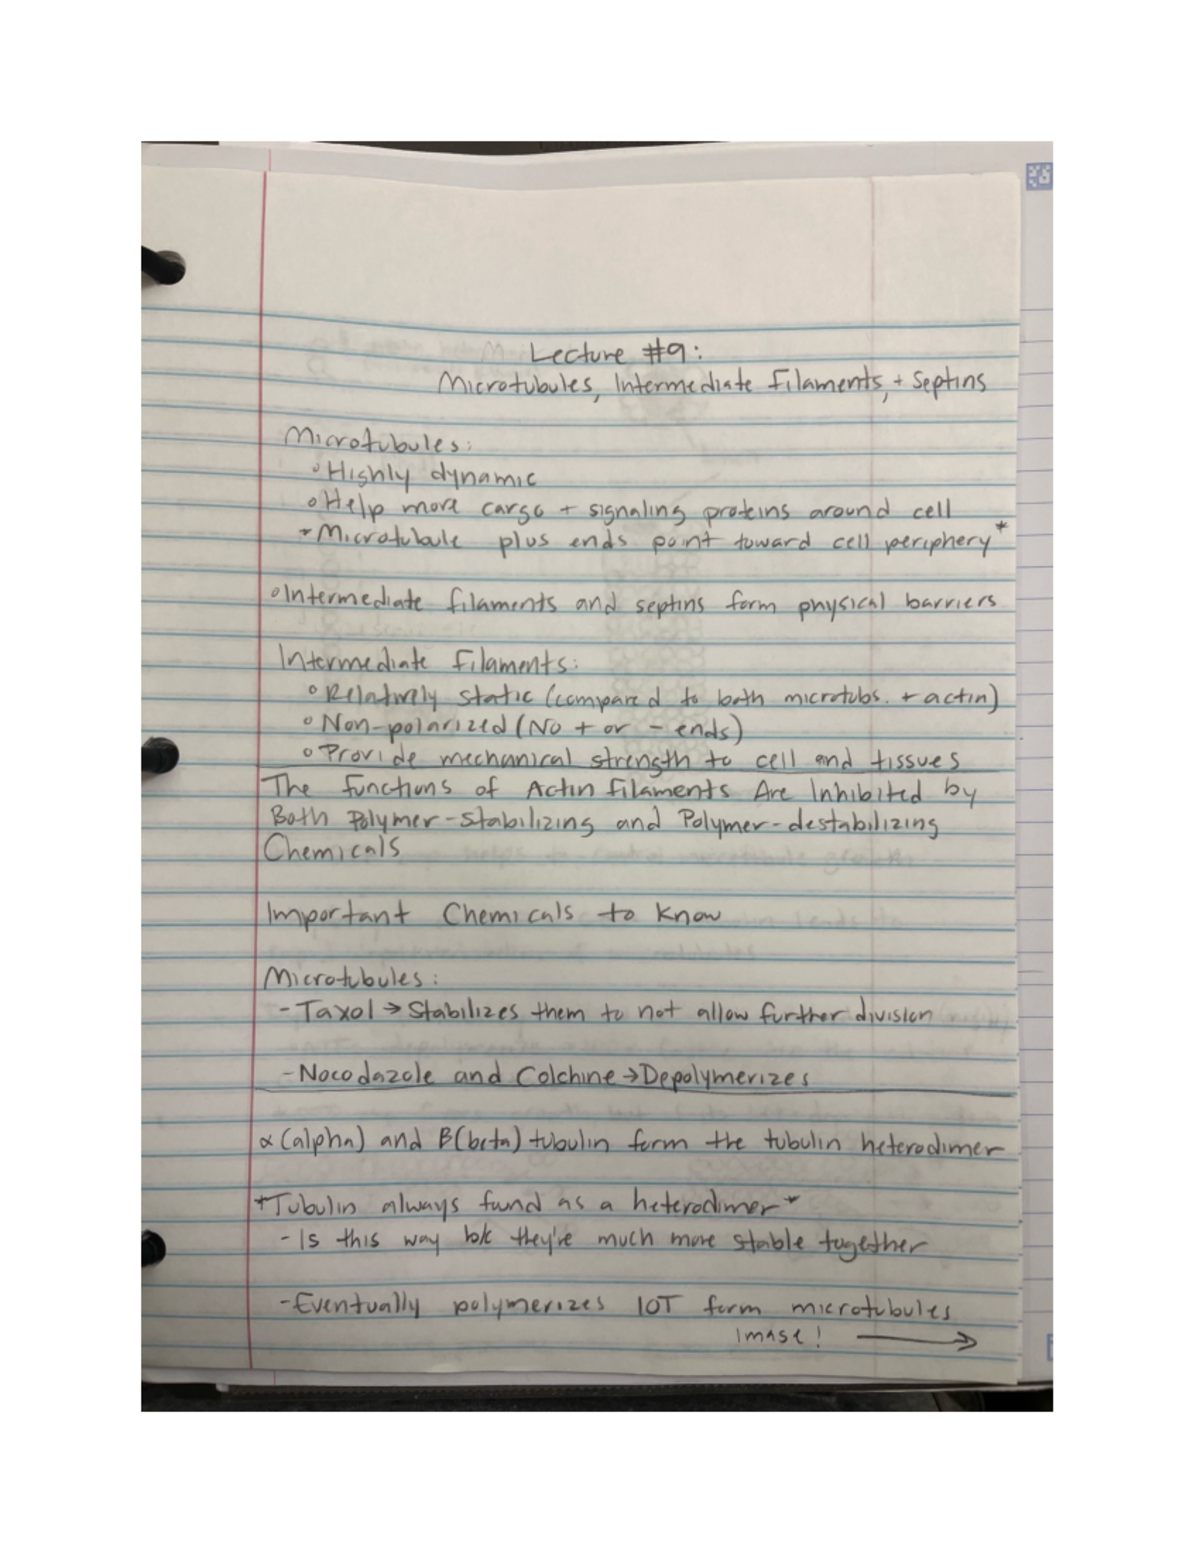 Lecture #9:
Microtubules, Intermediate Filaments, + Septins
Microtubules:
° Highly dynamic
° Help move cargo + signaling proteins around cell
* Microtubule plus ends point toward cell periphery *
° Intermediate filaments and septins form physical barriers
Intermediate Filaments:
° Relatively static (compared to both microtubs. + actin)
° Non-polarized (No + or - ends)
° Provide mechanical strength to cell and tissues
The Functions of Actin Filaments Are Inhibited by
Both Polymer-Stabilizing and Polymer-destabilizing
Chemicals
Important Chemicals to Know
Microtubules:
- Taxol → Stabilizes them to not allow further division
- Nocodazole and Colchine → Depolymerizes
α (alpha) and B (beta) tubulin form the tubulin heterodimer
*Tubulin always found as a heterodimer*
- Is this way b/c they're much more stable together
- Eventually polymerizes IOT form microtubules
Image! →